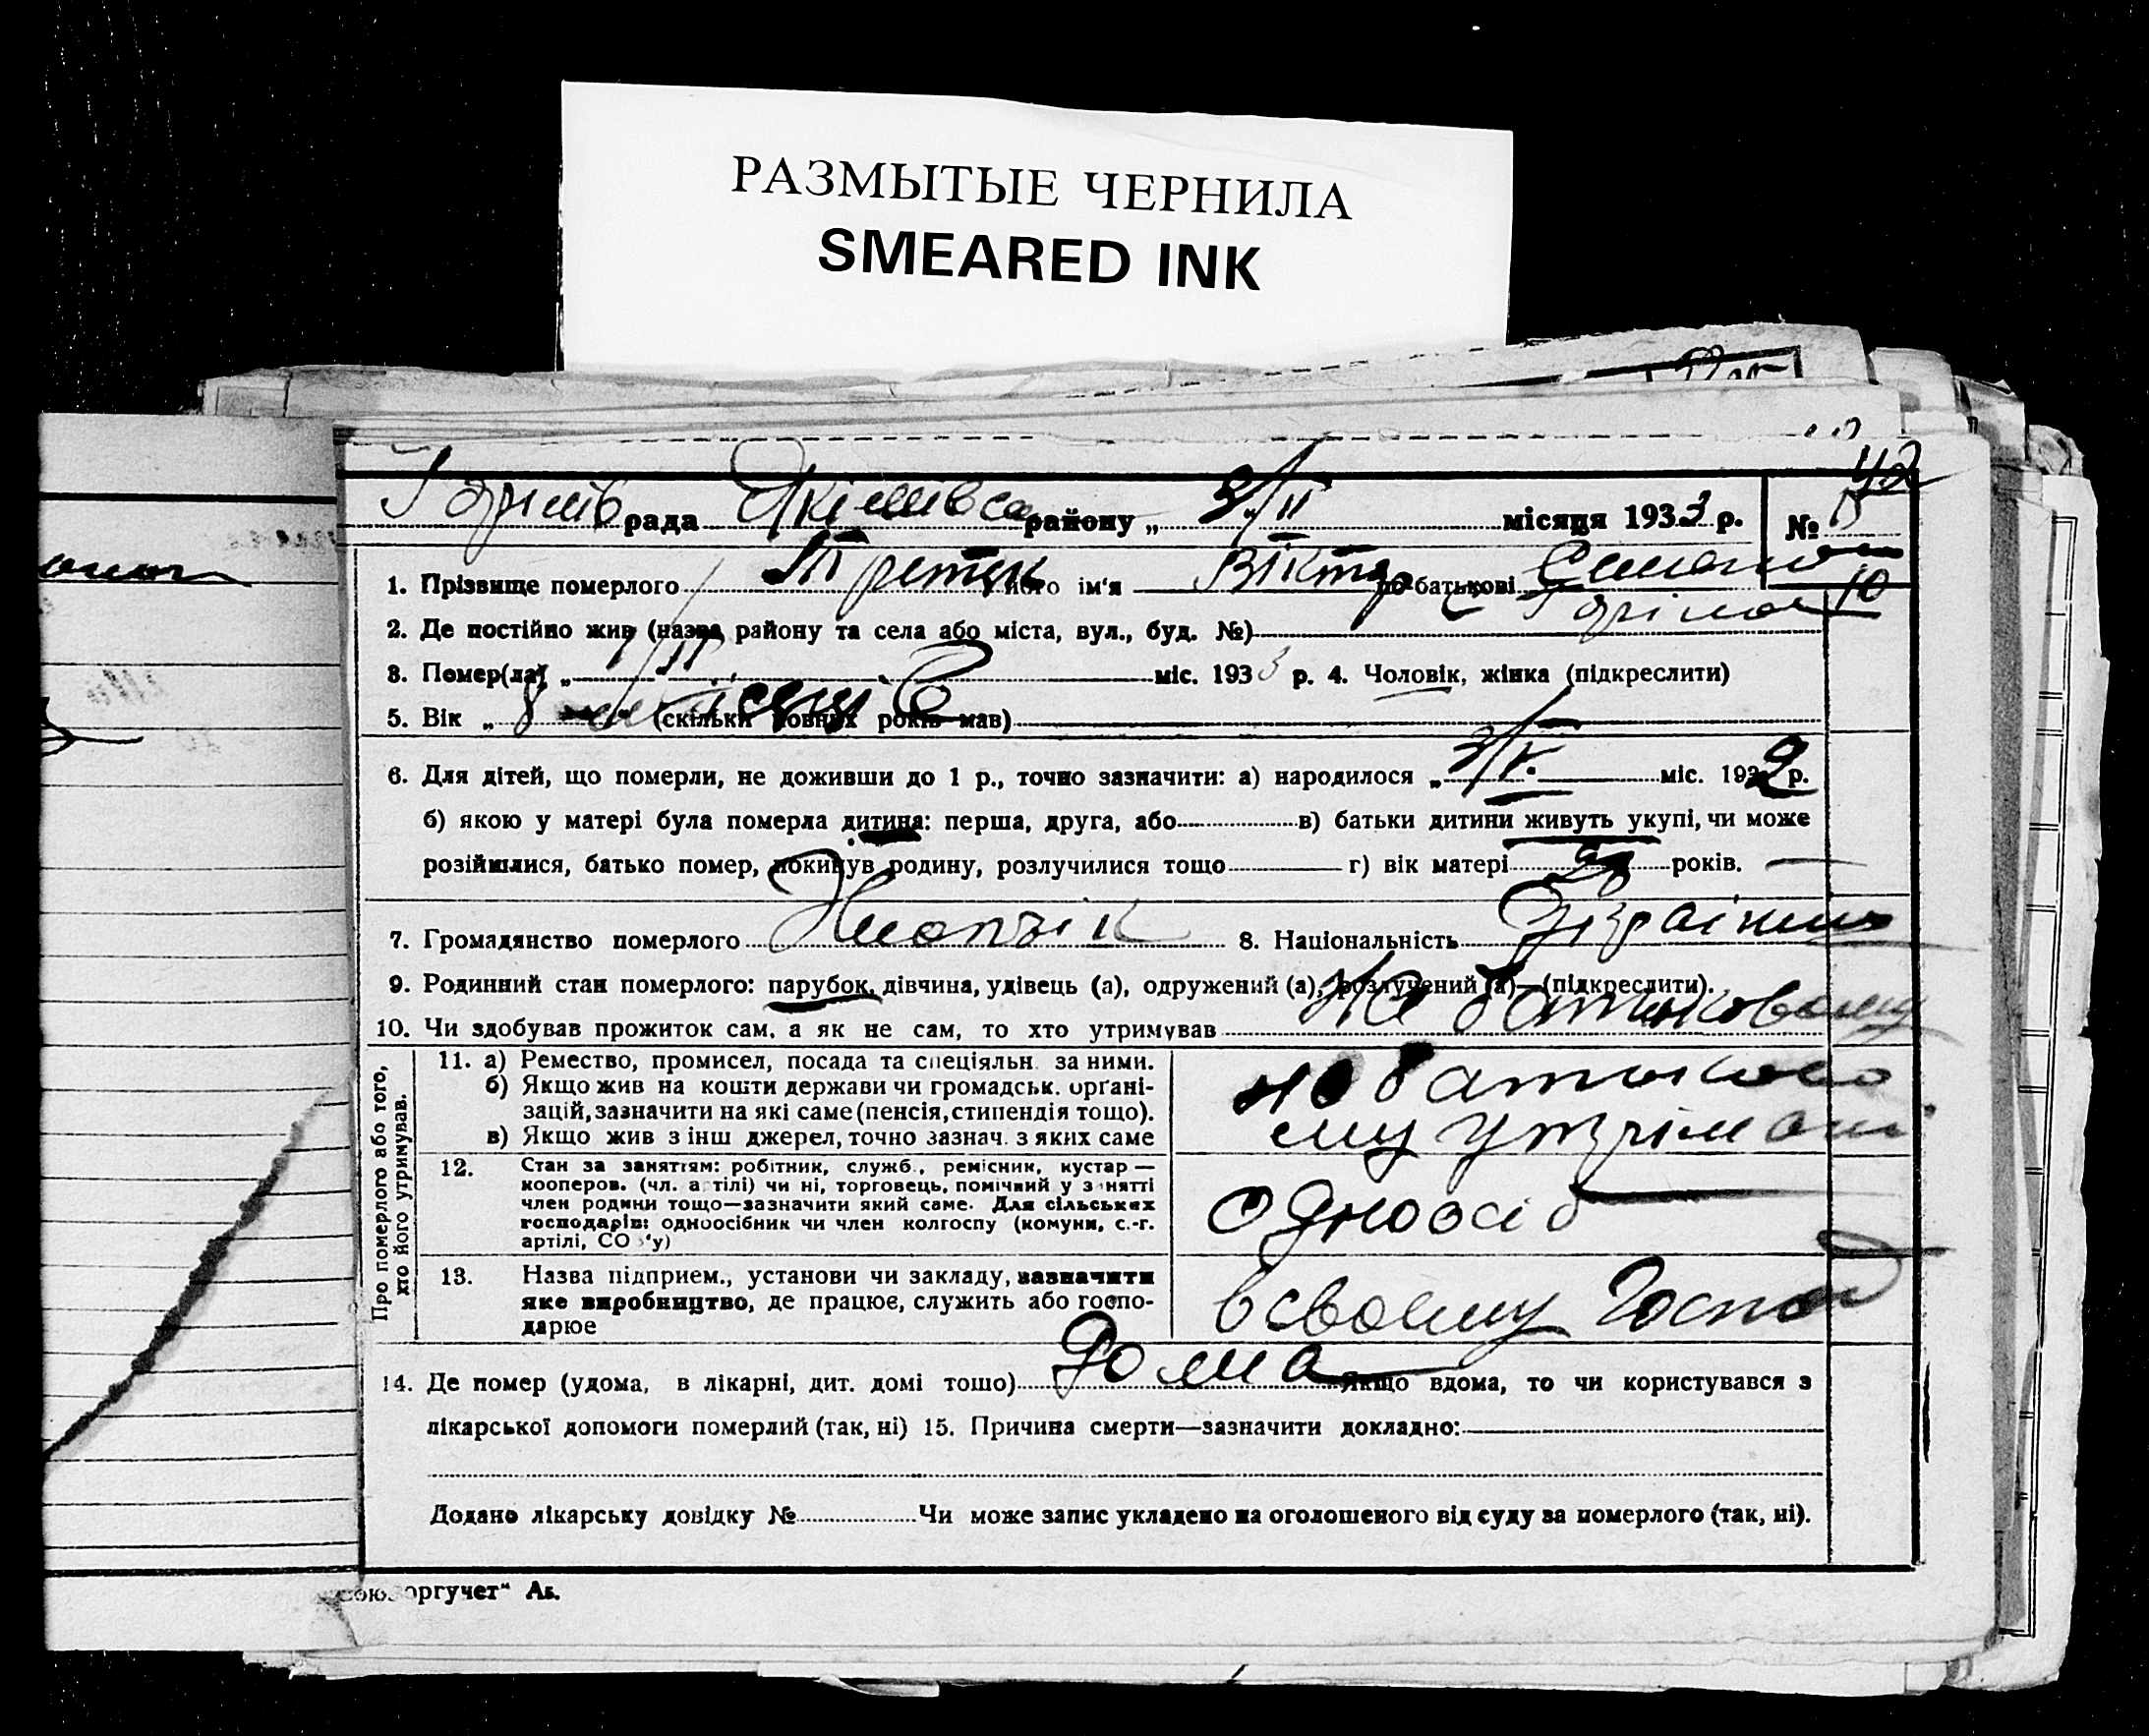 РАЗМЫТЫЕ ЧЕРНИЛА
SMEARED INK
42
рада району „ 3/II місяця 1933 р. №
1. Прізвище померлого його ім'я Віктор по-батькові
10
2. Де постійно жив (назва району та села або міста, вул., буд. №)
3. Помер(ла) „ міс. 1933 р. 4. Чоловік, жінка (підкреслити)
5. Вік „ 8 місяців (скільки повних років мав)
6. Для дітей, що померли, не доживши до 1 р., точно зазначити: а) народилося „ міс. 1932 р.
б) якою у матері була померла дитина: перша, друга, або в) батьки дитини живуть укупі, чи може
розійшлися, батько помер, покинув родину, розлучилися тощо г) вік матері років.
7. Громадянство померлого 8. Національність
9. Родинний стан померлого: парубок, дівчина, удівець (а), одружений (а), розлучений (а)—(підкреслити).
10. Чи здобував прожиток сам, а як не сам, то хто утримував На батьковому
Про померлого або того,
хто його утримував.
11. а) Ремество, промисел, посада та спеціяльн. за ними.
б) Якщо жив на кошти держави чи громадськ. орґані-
зацій, зазначити на які саме (пенсія, стипендія тощо).
в) Якщо жив з інш джерел, точно зазнач. з яких саме
на батьково
му утрімані
12. Стан за заняттям: робітник, служб., ремісник, кустар—
кооперов. (чл. артілі) чи ні, торговець, помічний у занятті
член родини тощо—зазначити який саме. Для сільських
господарів: одноосібник чи член колгоспу (комуни, с.-г.
артілі, СО у)
одноосіб
13. Назва підприєм., установи чи закладу, зазначити
яке виробництво, де працює, служить або госпо-
дарює
в своему госпо
14. Де помер (удома, в лікарні, дит. домі тощо) дома Якщо вдома, то чи користувався з
лікарської допомоги померлий (так, ні) 15. Причина смерти—зазначити докладно:
Додано лікарську довідку № Чи може запис укладено на оголошеного від суду за померлого (так, ні).
оргучет" Ак.